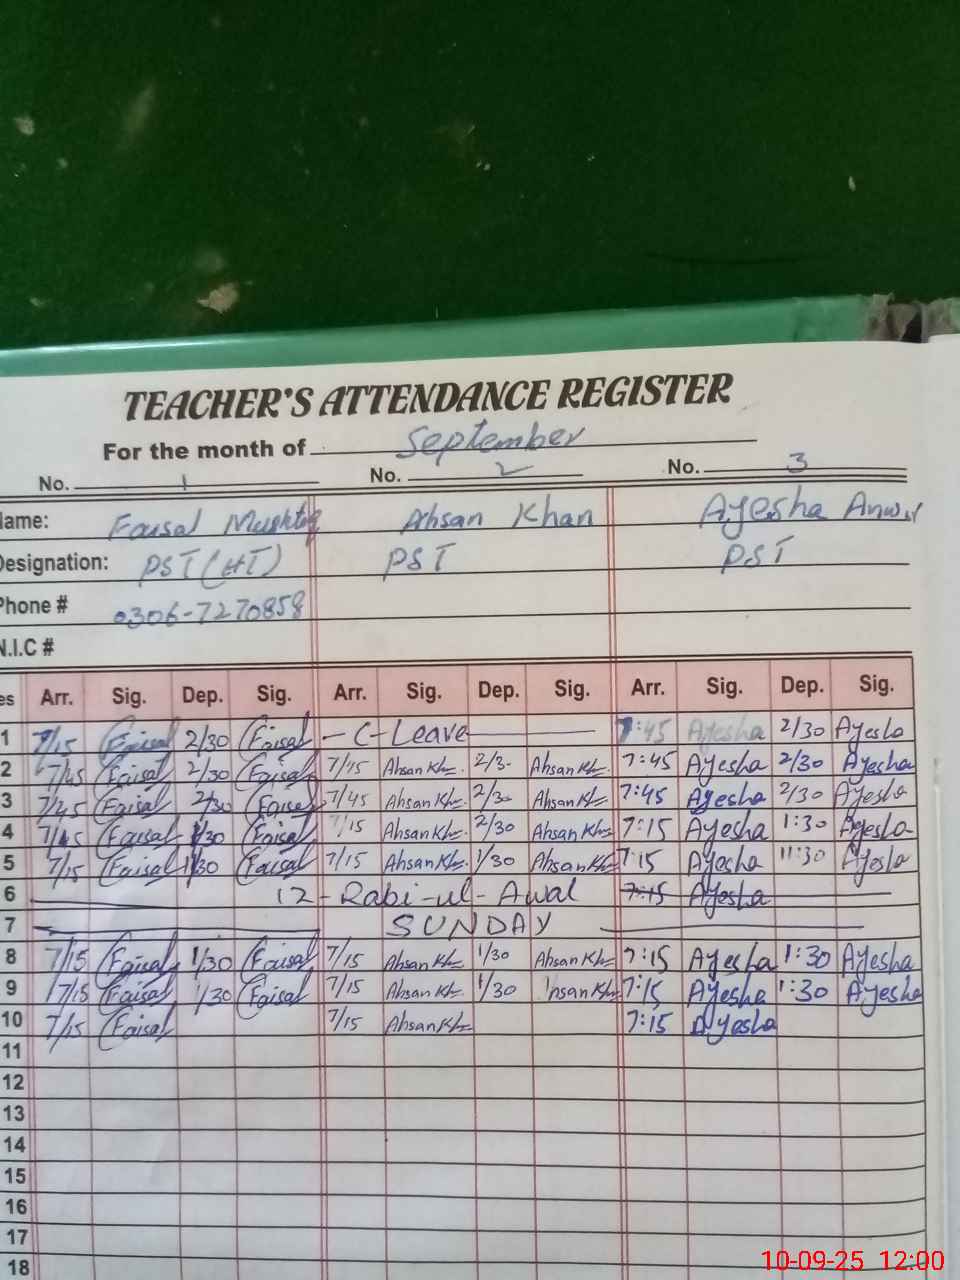 TEACHER'S ATTENDANCE REGISTER
For the month of September
No. 1 No. 2 No. 3
Name: Faisal Mushtaq Ahsan Khan Ayesha Anwar
Designation: PST (HT) PST PST
Phone # 0306-7270858
N.I.C #
es Arr. Sig. Dep. Sig. Arr. Sig. Dep. Sig. Arr. Sig. Dep. Sig.
1 7/15 Faisal 2/30 Faisal - C- Leave 7:45 Ayesha 2/30 Ayesha
2 7/45 Faisal 2/30 Faisal 7/45 Ahsan Kh 2/3- Ahsan Kh 7:45 Ayesha 2/30 Ayesha
3 7/45 Faisal 2/30 Faisal 7/45 Ahsan Kh 2/30 Ahsan Kh 7:45 Ayesha 2/30 Ayesha
4 7/15 Faisal 1/30 Faisal 7/15 Ahsan Kh 2/30 Ahsan Kh 7:15 Ayesha 1:30 Ayesha
5 7/15 Faisal 1/30 Faisal 7/15 Ahsan Kh 1/30 Ahsan Kh 7:15 Ayesha 11:30 Ayesha
6 12-Rabi-ul-Awal 7:15 Ayesha
7 SUNDAY
8 7/15 Faisal 1/30 Faisal 7/15 Ahsan Kh 1/30 Ahsan Kh 7:15 Ayesha 1:30 Ayesha
9 7/15 Faisal 1/30 Faisal 7/15 Ahsan Kh 1/30 Ahsan Kh 7:15 Ayesha 1:30 Ayesha
10 7/15 Faisal 7/15 Ahsan Kh 7:15 Ayesha
11
12
13
14
15
16
17
18
10-09-25 12:00